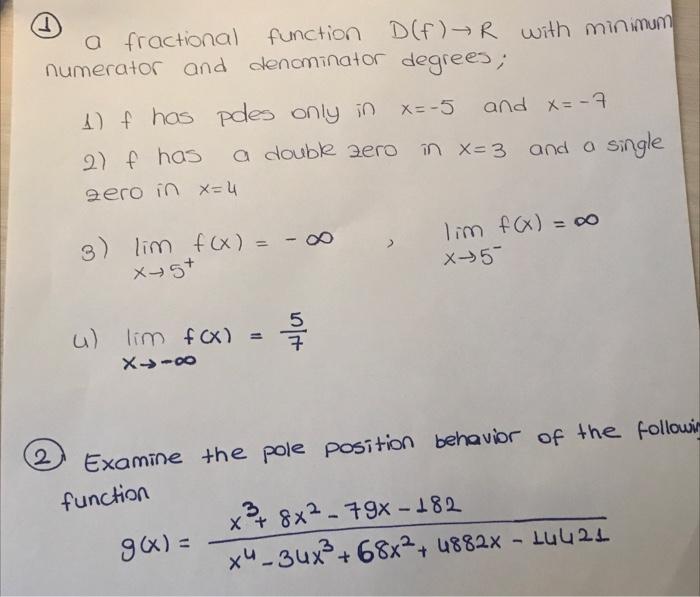 ① a fractional function D(f)→R with minimum
numerator and denominator degrees;
1) f has poles only in x=-5 and x=-7
2) f has a double zero in x=3 and a single
zero in x=4
3) lim x→5⁺ f(x) = -∞ , lim x→5⁻ f(x) = ∞
4) lim x→-∞ f(x) = 5/7
② Examine the pole position behavior of the followin
function
g(x) = (x³+8x²-79x-182)/(x⁴-34x³+68x²+4882x-14421)